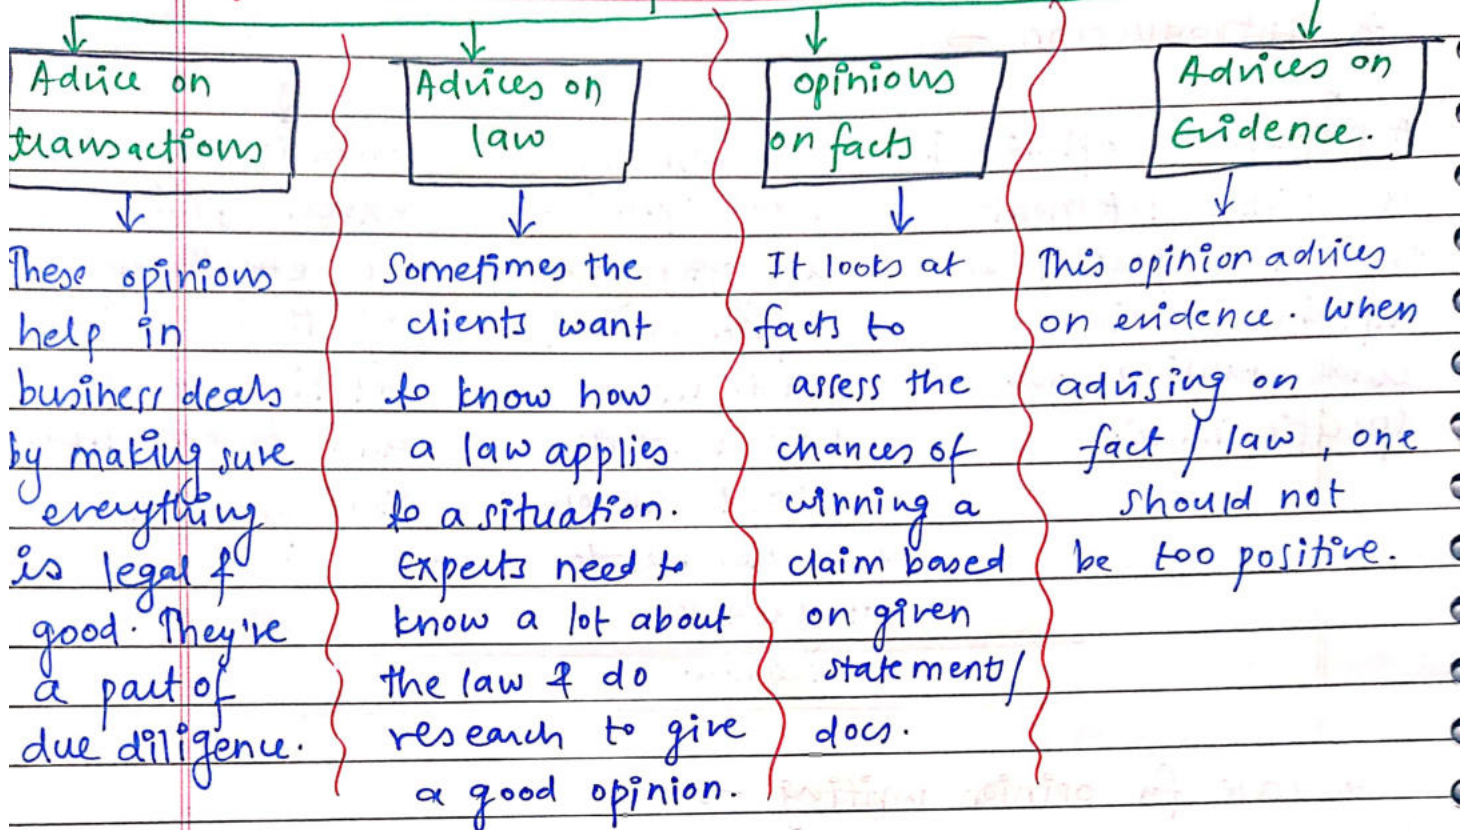 Advice on
transactions
These opinions
help in
business deals
by making sure
everything
is legal &
good. They're
a part of
due diligence.
Advices on
law
Sometimes the
clients want
to know how
a law applies
to a situation.
Experts need to
know a lot about
the law & do
research to give
a good opinion.
opinions
on facts
It looks at
facts to
assess the
chances of
winning a
claim based
on given
statement/
docs.
Advices on
Evidence.
This opinion advices
on evidence. When
advising on
fact / law, one
should not
be too positive.